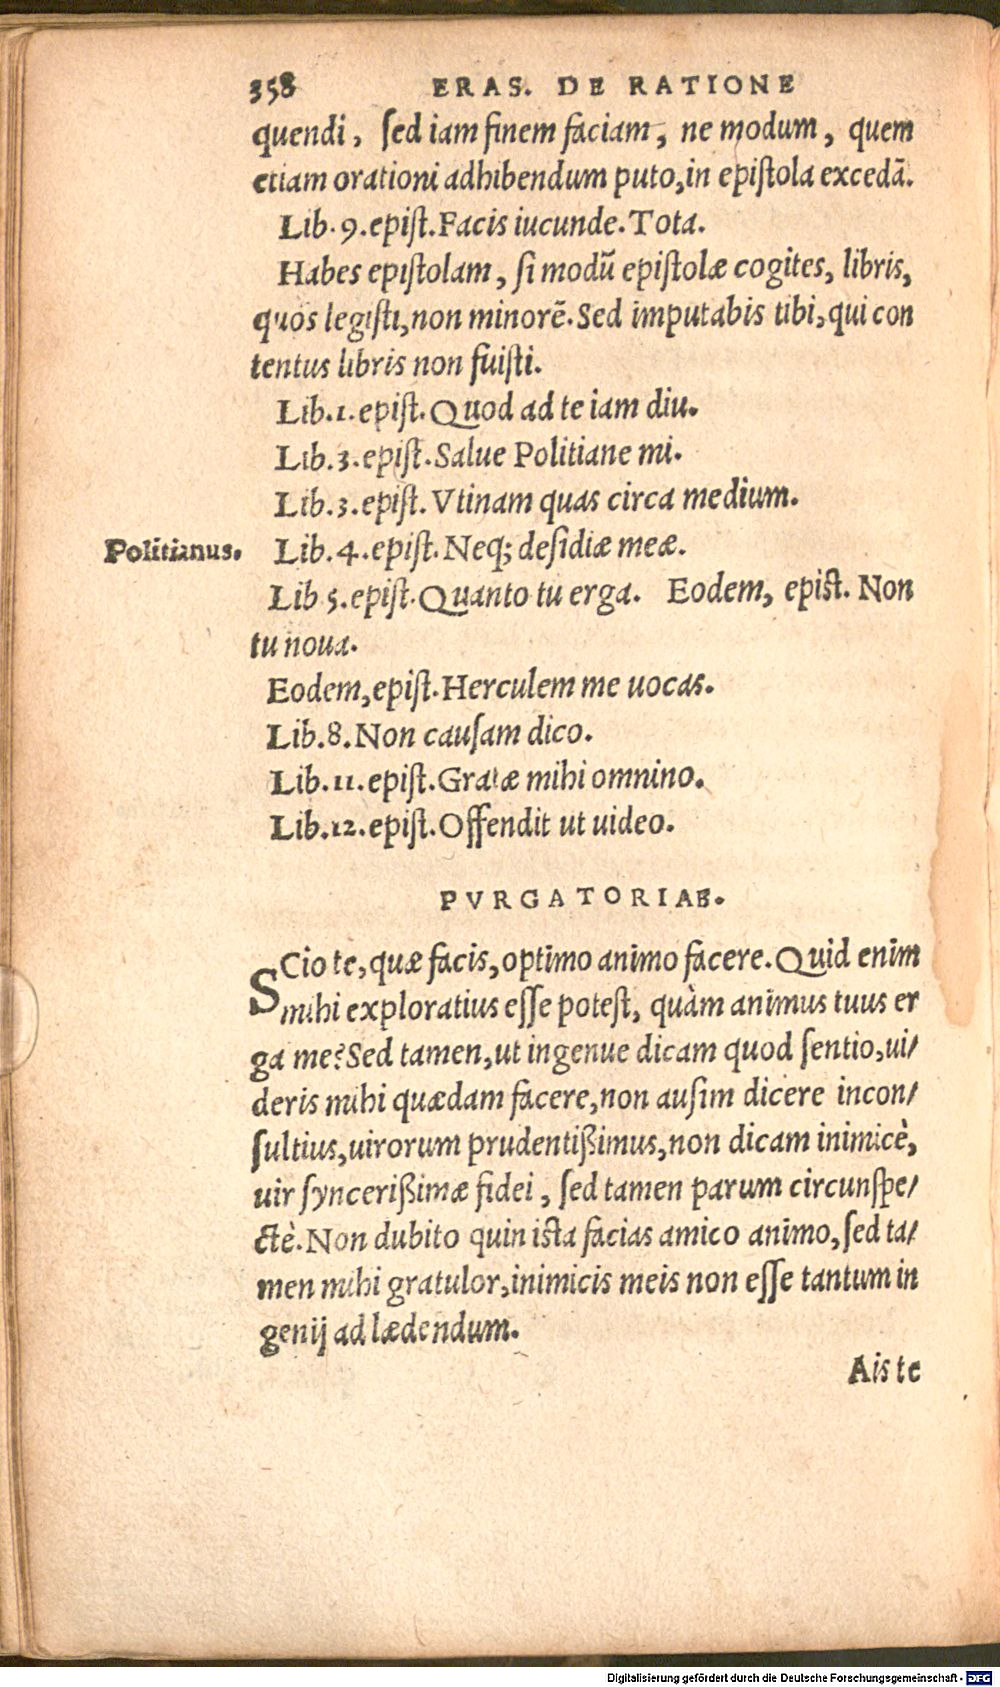 358 ERAS. DE RATIONE
quendi, ſed iam finem faciam, ne modum, quem
etiam orationi adhibendum puto, in epiſtola excedā.
Lib. 9. epiſt. Facis iucunde. Tota.
Habes epiſtolam, ſi modū epiſtolæ cogites, libris,
quos legiſti, non minorē. Sed imputabis tibi, qui con
tentus libris non fuiſti.
Lib. 1. epiſt. Quod ad te iam diu.
Lib. 3. epiſt. Salue Politiane mi.
Lib. 3. epiſt. Vtinam quas circa medium.
Politianus. Lib. 4. epiſt. Neq; deſidiæ meæ.
Lib 5. epiſt. Quanto tu erga. Eodem, epiſt. Non
tu noua.
Eodem, epiſt. Herculem me uocas.
Lib. 8. Non cauſam dico.
Lib. 11. epiſt. Gratæ mihi omnino.
Lib. 12. epiſt. Offendit ut uideo.
PVRGATORIAE.
SCio te, quæ facis, optimo animo facere. Quid enim
mihi exploratius eſſe poteſt, quàm animus tuus er
ga me? Sed tamen, ut ingenue dicam quod ſentio, ui/
deris mihi quædam facere, non auſim dicere incon/
ſultius, uirorum prudentißimus, non dicam inimicè,
uir ſyncerißimæ fidei, ſed tamen parum circunſpe/
ctè. Non dubito quin iſta facias amico animo, ſed ta/
men mihi gratulor, inimicis meis non eſſe tantum in
genij ad lædendum.
Ais te
Digitalisierung gefördert durch die Deutsche Forschungsgemeinschaft - DFG